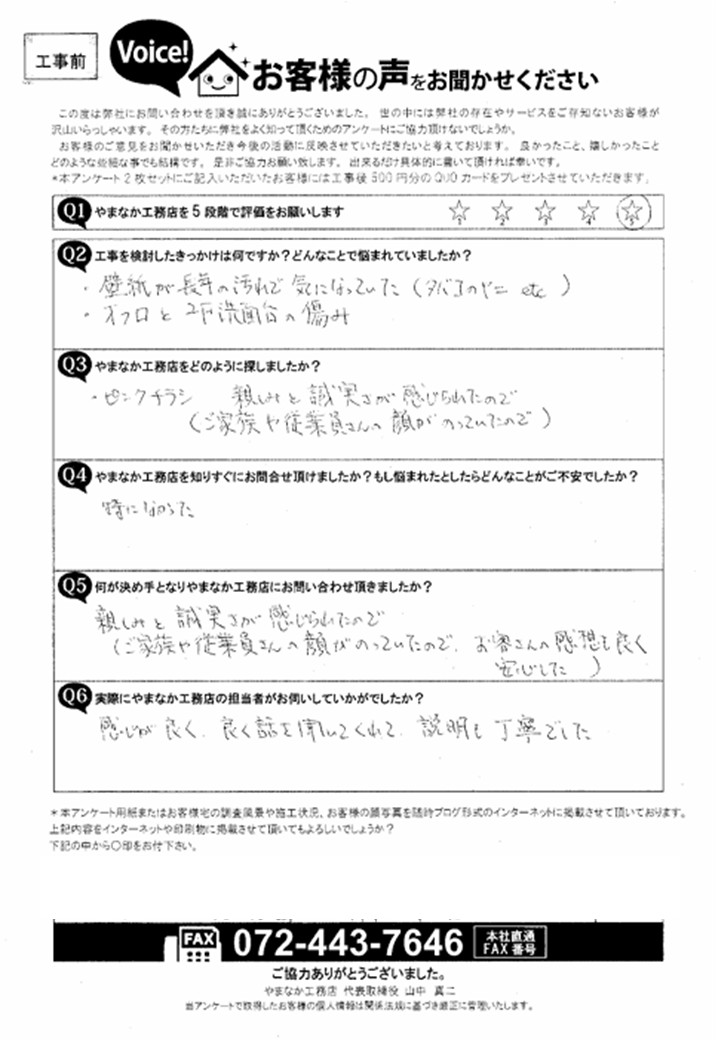 工事前
Voice!
お客様の声をお聞かせください
この度は弊社にお問い合わせを頂き誠にありがとうございました。 世の中には弊社の存在やサービスをご存知ないお客様が
沢山いらっしゃいます。 その方たちに弊社をよく知って頂くためのアンケートにご協力頂けないでしょうか。
お客様のご意見をお聞かせいただき今後の活動に反映させていただきたいと考えております。 良かったこと、嬉しかったこと
どのような些細な事でも結構です。 是非ご協力お願い致します。 出来るだけ具体的に書いて頂ければ幸いです。
*本アンケート2枚セットにご記入いただいたお客様には工事後500円分のQUOカードをプレゼントさせていただきます。
Q1 やまなか工務店を5段階で評価をお願いします 1 2 3 4 5
Q2 工事を検討したきっかけは何ですか?どんなことで悩まれていましたか?
・壁紙が長年の汚れで気になっていた(タバコのヤニ etc )
・オフロと2F洗面台の傷み
Q3 やまなか工務店をどのように探しましたか?
・ピンクチラシ 親しみと誠実さが感じられたので
(ご家族や従業員さんの顔がのっていたので)
Q4 やまなか工務店を知りすぐにお問合せ頂けましたか?もし悩まれたとしたらどんなことがご不安でしたか?
特になかった
Q5 何が決め手となりやまなか工務店にお問い合わせ頂きましたか?
親しみと誠実さが感じられたので
(ご家族や従業員さんの顔がのっていたので、お客さんの感想も良く
安心した )
Q6 実際にやまなか工務店の担当者がお伺いしていかがでしたか?
感じが良く、良く話を聞いてくれて、説明も丁寧でした
*本アンケート用紙またはお客様宅の調査風景や施工状況、お客様の顔写真を随時ブログ形式のインターネットに掲載させて頂いております。
上記内容をインターネットや印刷物に掲載させて頂いてもよろしいでしょうか?
下記の中から〇印をお付下さい。
FAX 072-443-7646 本社直通 FAX番号
ご協力ありがとうございました。
やまなか工務店 代表取締役 山中 真二
当アンケートで取得したお客様の個人情報は関係法規に基づき厳正に管理いたします。